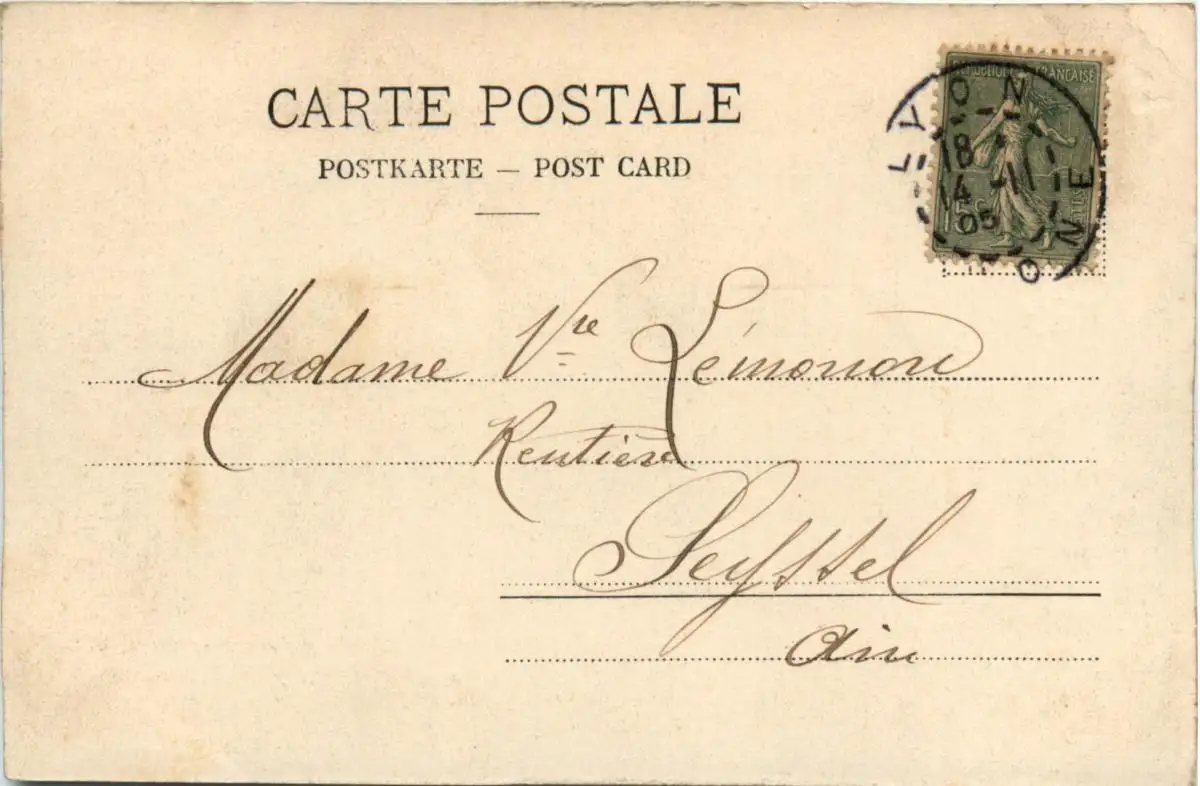 CARTE POSTALE
POSTKARTE — POST CARD
REPUBLIQUE FRANÇAISE
LYON
18
14 -11
05
RHONE
Madame Vve Lémonon
Rentière
Seyssel
Ain